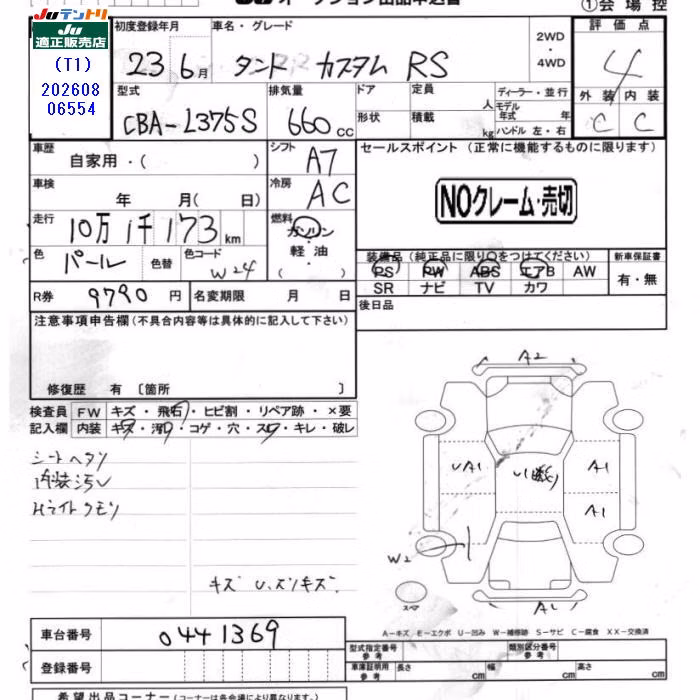 Juテントリ
Ju
適正販売店
(T1)
202608
06554
オークション出品申込書
①会場控
初度登録年月
車名・グレード
2WD
・
4WD
評価点
23 6月
タント カスタム RS
4
型式
排気量
ドア
定員
人
ディーラー・並行
外装
内装
CBA-L375S
660cc
形状
積載
kg
モデル
年式
年
ハンドル 左・右
C
C
車歴
自家用・( )
シフト
A7
セールスポイント (正常に機能するものに限ります)
車検
年 月( 日)
冷房
AC
NOクレーム・売切
走行
10万1千173km
燃料
ガソリン
・
軽油
・
( )
色
パール
色替
色コード
W24
装備品 (純正品に限り○をつけてください)
新車保証書
PS PW ABS エアB AW
有・無
SR ナビ TV カワ
R券
9790円
名変期限
月 日
後日品
注意事項申告欄(不具合内容等は具体的に記入して下さい)
修復歴 有 〔箇所 〕
検査員
記入欄
FW
キズ・飛石・ヒビ割・リペア跡・×要
内装
キズ・汚れ・コゲ・穴・スレ・キレ・破レ
シートヘタリ
内装汚レ
Hライトクモリ
キズ U.スリキズ.
A2
UA1
A1
A1
W2
スペア
A1
A-キズ E-エクボ U-凹み W-補修跡 S-サビ C-腐食 XX-交換済
車台番号
0441369
登録番号
型式指定番号
参考
類別区分番号
参考
車庫証明用
参考
長さ
cm
幅
cm
高さ
cm
希望出品コーナー(コーナーは各会場により異なります。)